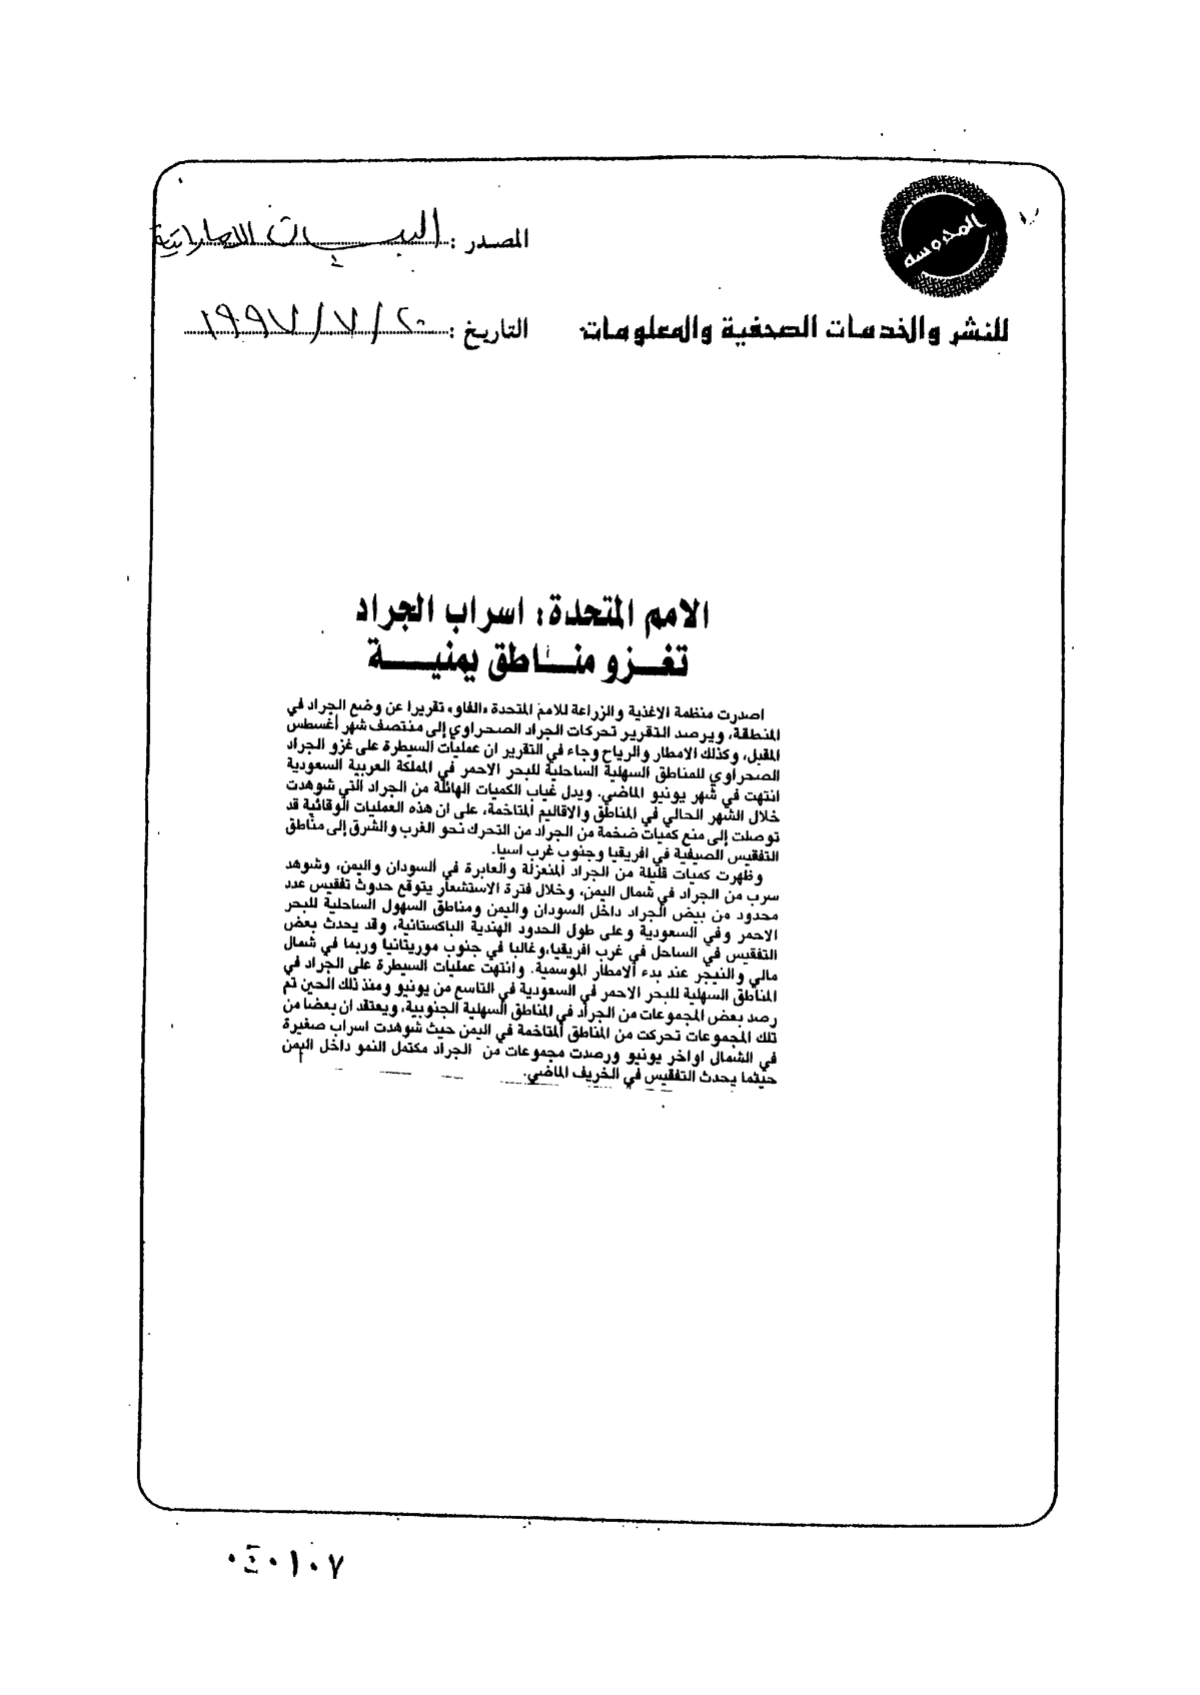 المحروسة
المصدر : البيان الاماراتية
للنشر والخدمات الصحفية والمعلومات
التاريخ : ٢٠ / ٧ / ١٩٩٧
الامم المتحدة: اسراب الجراد
تغزو مناطق يمنية
اصدرت منظمة الاغذية والزراعة للامم المتحدة «الفاو» تقريرا عن وضع الجراد في
المنطقة، ويرصد التقرير تحركات الجراد الصحراوي إلى منتصف شهر أغسطس
المقبل، وكذلك الامطار والرياح وجاء في التقرير ان عمليات السيطرة على غزو الجراد
الصحراوي للمناطق السهلية الساحلية للبحر الاحمر في المملكة العربية السعودية
انتهت في شهر يونيو الماضي. ويدل غياب الكميات الهائلة من الجراد التي شوهدت
خلال الشهر الحالي في المناطق والاقاليم المتاخمة، على ان هذه العمليات الوقائية قد
توصلت إلى منع كميات ضخمة من الجراد من التحرك نحو الغرب والشرق إلى مناطق
التفقيس الصيفية في افريقيا وجنوب غرب اسيا.
وظهرت كميات قليلة من الجراد المنعزلة والعابرة في السودان واليمن، وشوهد
سرب من الجراد في شمال اليمن، وخلال فترة الاستشعار يتوقع حدوث تفقيس عدد
محدود من بيض الجراد داخل السودان واليمن ومناطق السهول الساحلية للبحر
الاحمر وفي السعودية وعلى طول الحدود الهندية الباكستانية، وقد يحدث بعض
التفقيس في الساحل في غرب افريقيا،وغالبا في جنوب موريتانيا وربما في شمال
مالي والنيجر عند بدء الامطار الموسمية. وانتهت عمليات السيطرة على الجراد في
المناطق السهلية للبحر الاحمر في السعودية في التاسع من يونيو ومنذ ذلك الحين تم
رصد بعض المجموعات من الجراد في المناطق السهلية الجنوبية، ويعتقد ان بعضا من
تلك المجموعات تحركت من المناطق المتاخمة في اليمن حيث شوهدت اسراب صغيرة
في الشمال اواخر يونيو ورصدت مجموعات من الجراد مكتمل النمو داخل اليمن
حيثما يحدث التفقيس في الخريف الماضي.
٠٤٠١٠٧